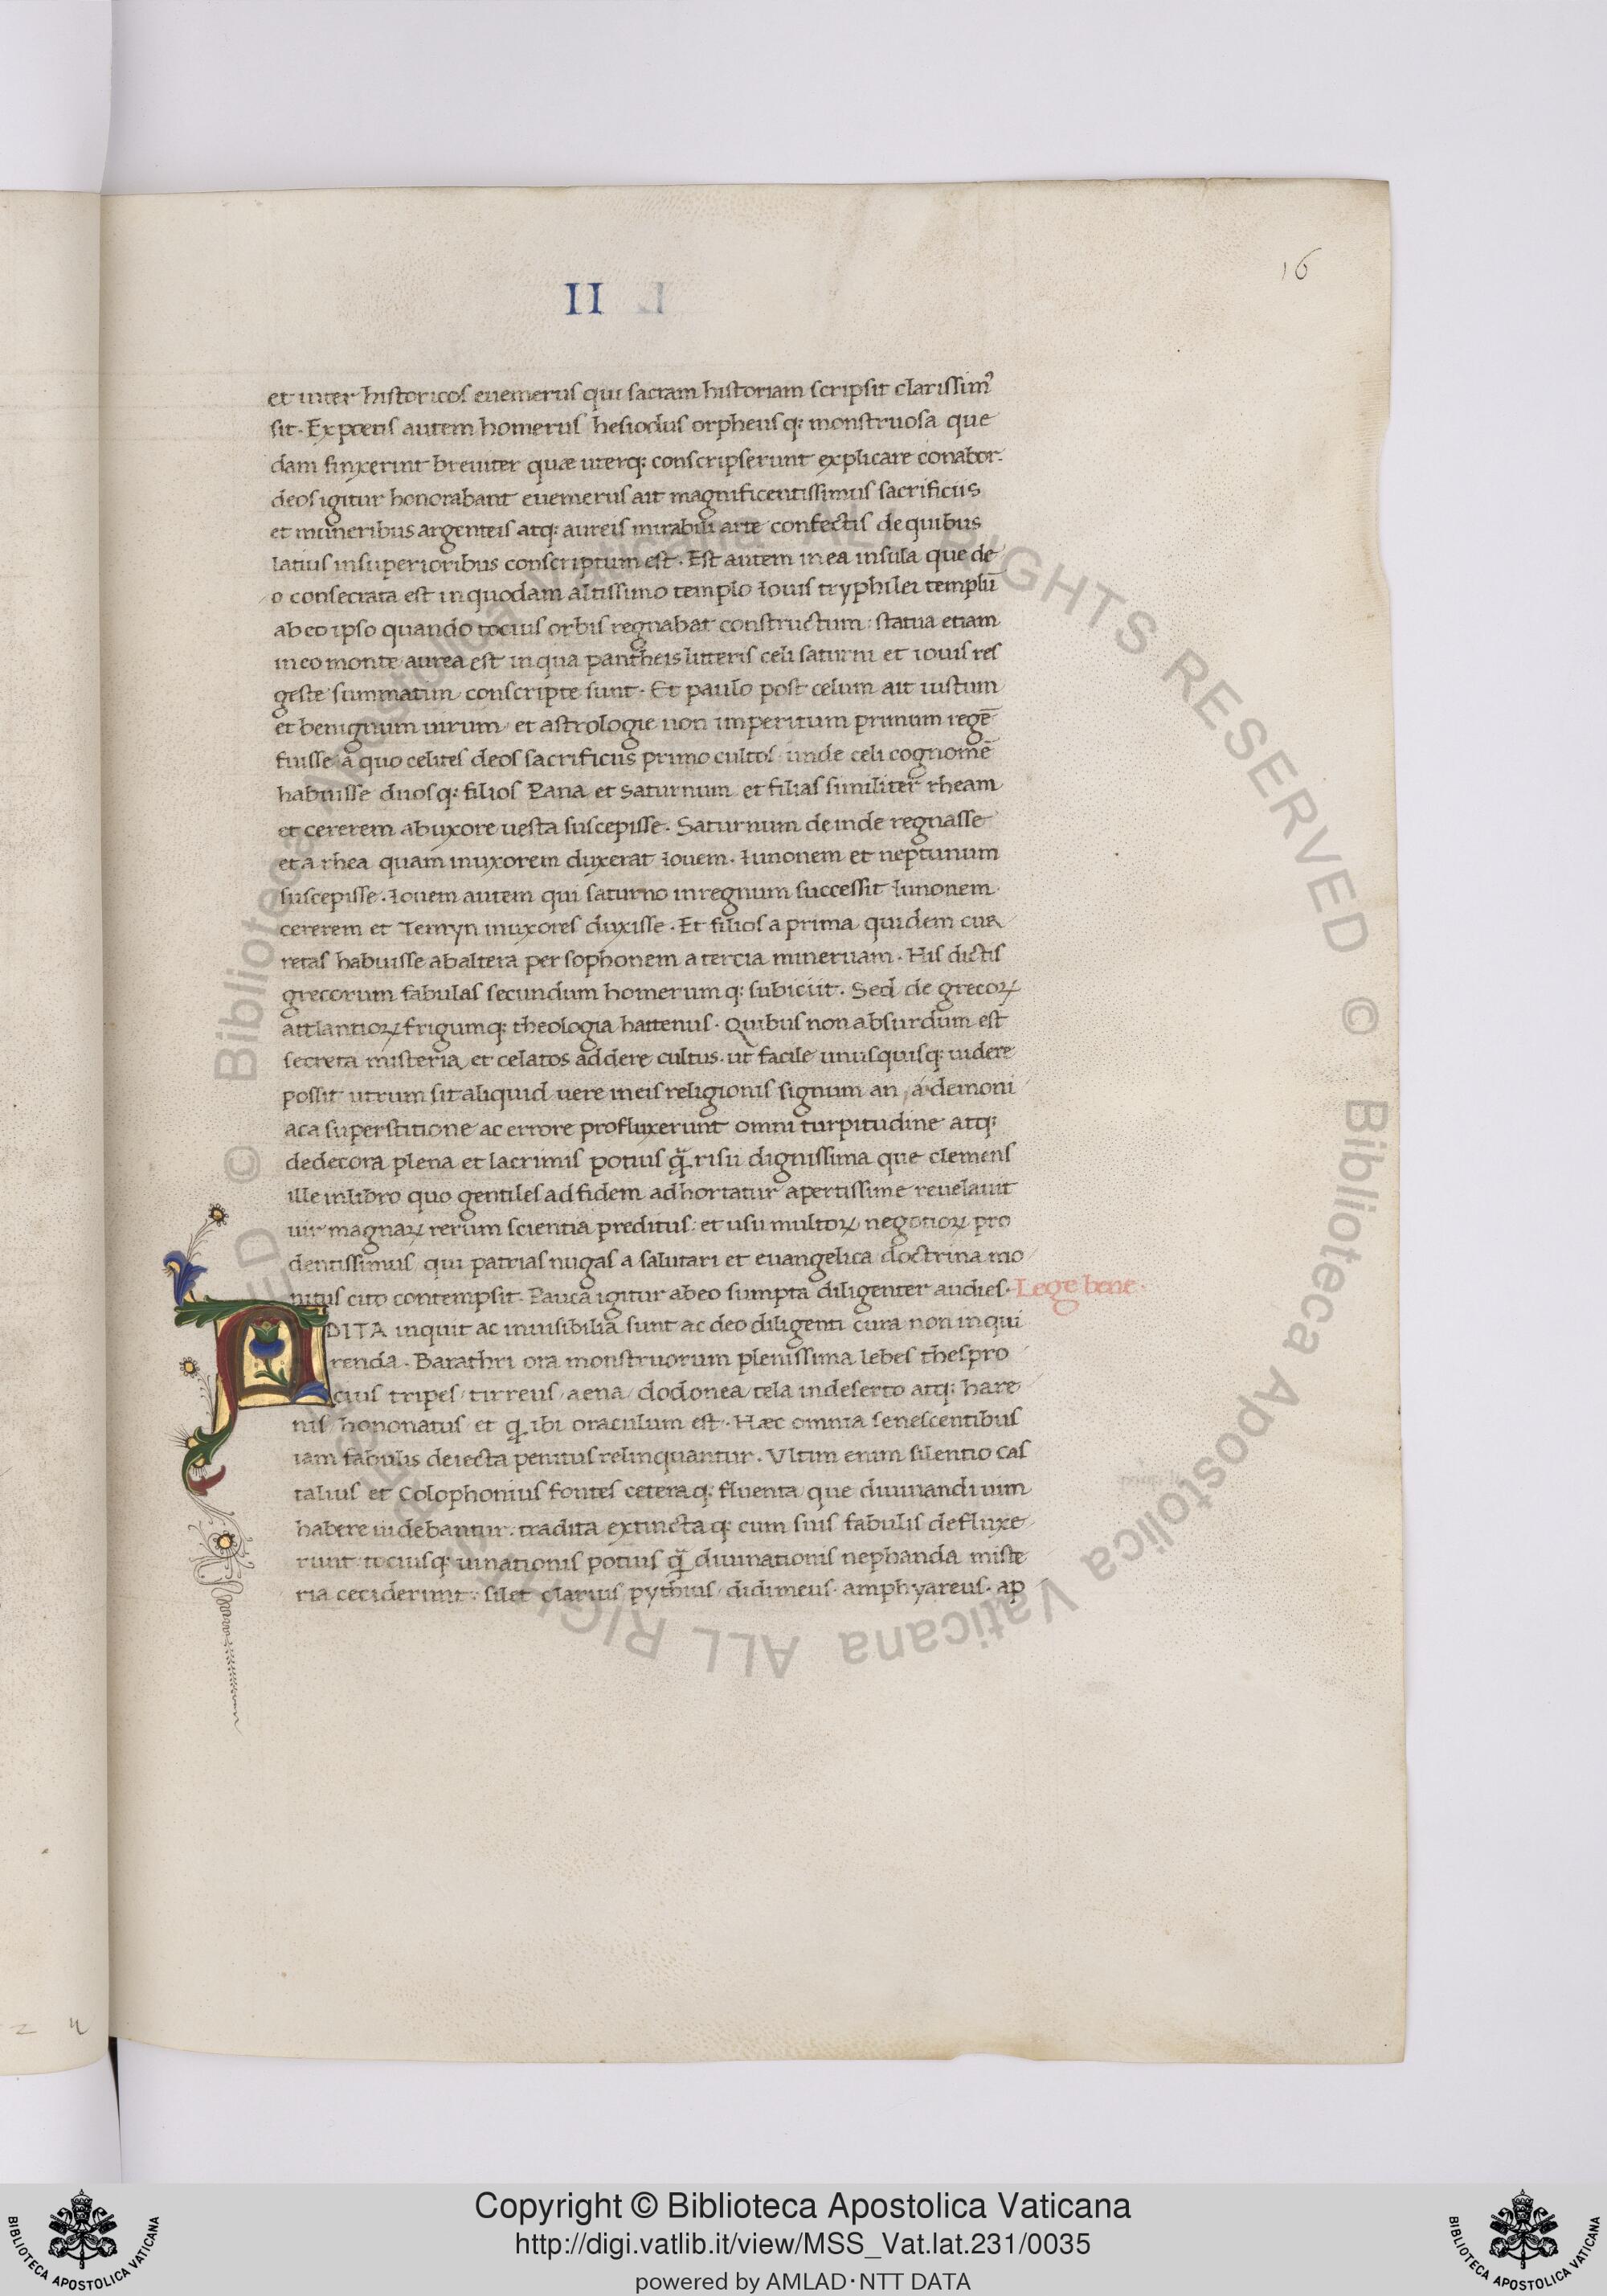 16
II
et inter historicos euemerus qui sacram historiam scripsit clarissimꝰ
sit. Ex poetis autem homerus hesiodus orpheusq: monstruosa que
dam finxerint breuiter quæ uterq: conscripserunt explicare conabor.
deos igitur honorabant euemerus ait magnificentissimus sacrificiis
et muneribus argenteis atq: aureis mirabili arte confectis de quibus
latius in superioribus conscriptum est. Est autem in ea insula que de
o consecrata est in quodam altissimo templo Iouis tryphilei templū
ab eo ipso quando tocius orbis regnabat constructum: statua etiam
in eo monte aurea est in qua pantheis litteris celi saturni et iouis res
geste summatim conscripte sunt. Et paulo post celum ait iustum
et benignum uirum et astrologie non imperitum primum regē
fuisse a quo celites deos sacrificiis primo cultos unde celi cognomē
habuisse duosq: filios Pana et Saturnum et filias similiter rheam
et cererem ab uxore uesta suscepisse. Saturnum deinde regnasse
et a rhea quam in uxorem duxerat Iouem. Iunonem et neptunum
suscepisse. Iouem autem qui saturno in regnum successit Iunonem
cererem et Temyn in uxores duxisse. Et filios a prima quidem cua
retas habuisse ab altera persophonem a tercia mineruam. His dictis
grecorum fabulas secundum homerumq: subiciit. Sed de grecoꝝ
attlantioꝝ frigumq: theologia hattenus. Quibus non absurdum est
secreta misteria et celatos addere cultus. ut facile unusquisq: uidere
possit utrum sit aliquid uere in eis religionis signum an a demoni
aca superstitione ac errore profluxerunt omni turpitudine atq:
dedecora plena et lacrimis potius q̄ risu dignissima que clemens
ille in libro quo gentiles ad fidem adhortatur apertissime reuelauit
uir magnaꝝ rerum scientia preditus: et usu multoꝝ negotioꝝ pro
dentissimus qui patrias nugas a salutari et euangelica doctrina mo
nitus cito contempsit. Pauca igitur ab eo sumpta diligenter audies. Lege bene.
ADITA inquit ac inuisibilia sunt ac deo diligenti cura non inqui
renda. Barathri ora monstruorum plenissima lebes thespro
cius tripes tirreus aena dodonea tela in deserto atq: hare
nis hononatus et q ibi oraculum est. Hæc omnia senescentibus
iam fabulis deiecta penitus relinquantur. Vltim enim silentio cas
talius et Colophonius fontes ceteraq: fluenta que diuinandi uim
habere uidebantur. tradita extinctaq: cum suis fabulis defluxe
runt tociusq: uinationis potius q̄ diuinationis nephanda miste
ria ceciderunt: silet clarius pythius didimeus. amphyareus. ap
Copyright © Biblioteca Apostolica Vaticana
http://digi.vatlib.it/view/MSS_Vat.lat.231/0035
powered by AMLAD·NTT DATA
BIBLIOTECA APOSTOLICA VATICANA
BIBLIOTECA APOSTOLICA VATICANA
© Biblioteca Apostolica Vaticana ALL RIGHTS RESERVED
© Biblioteca Apostolica Vaticana ALL RIGHTS RESERVED